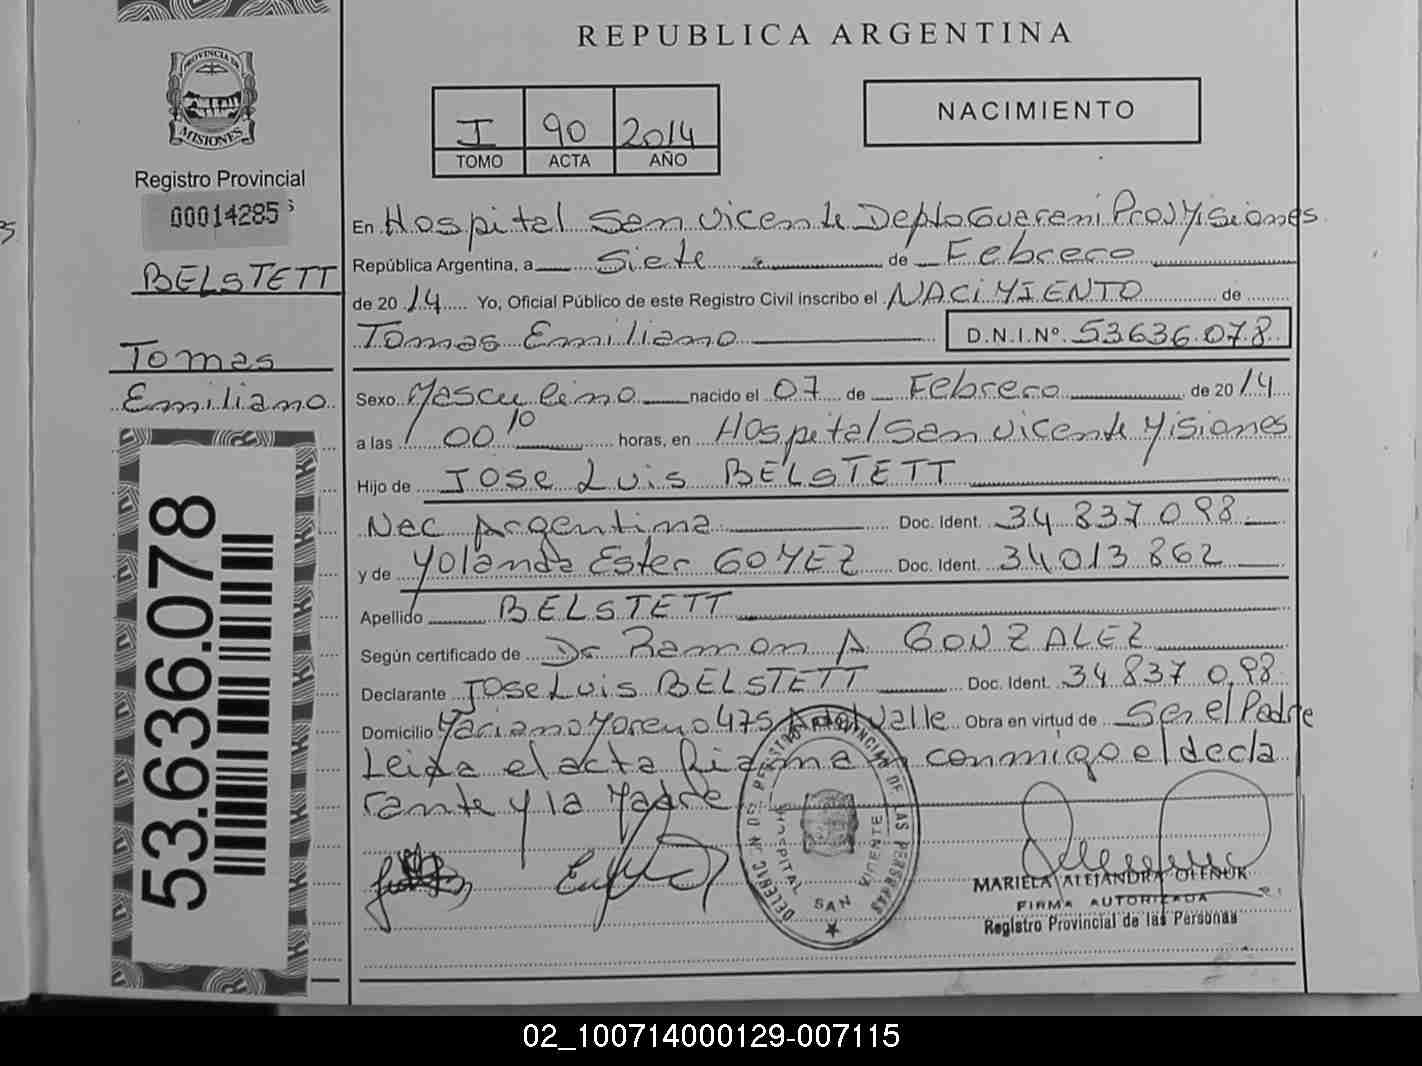 REPUBLICA ARGENTINA
PROVINCIA DE
MISIONES
Registro Provincial
00014285
BELSTETT
Tomas
Emiliano
53.636.078
I 90 2014
TOMO ACTA AÑO
NACIMIENTO
En Hospital San Vicente Depto Guarani Prov Misiones
República Argentina, a Siete de Febrero
de 2014 Yo, Oficial Público de este Registro Civil inscribo el NACIMIENTO de
Tomas Emiliano D.N.I.Nº 53636.078
Sexo Masculino nacido el 07 de Febrero de 2014
a las 00 10 horas, en Hospital San Vicente Misiones
Hijo de JOSE LUIS BELSTETT
Nac Argentina Doc. Ident. 34 837 098
y de Yolanda Ester GOMEZ Doc. Ident. 34 013 862
Apellido BELSTETT
Según certificado de Dr Ramon A GONZALEZ
Declarante JOSE LUIS BELSTETT Doc. Ident. 34 837 098
Domicilio Mariano Moreno 475 A del Valle Obra en virtud de Ser el Padre
Leida el acta firman conmigo el decla
rante y la Madre
REGISTRO PROVINCIAL DE LAS PERSONAS
HOSPITAL SAN VICENTE
MARIELA ALEJANDRA OLENUK
FIRMA AUTORIZADA
Registro Provincial de las Personas
02_100714000129-007115